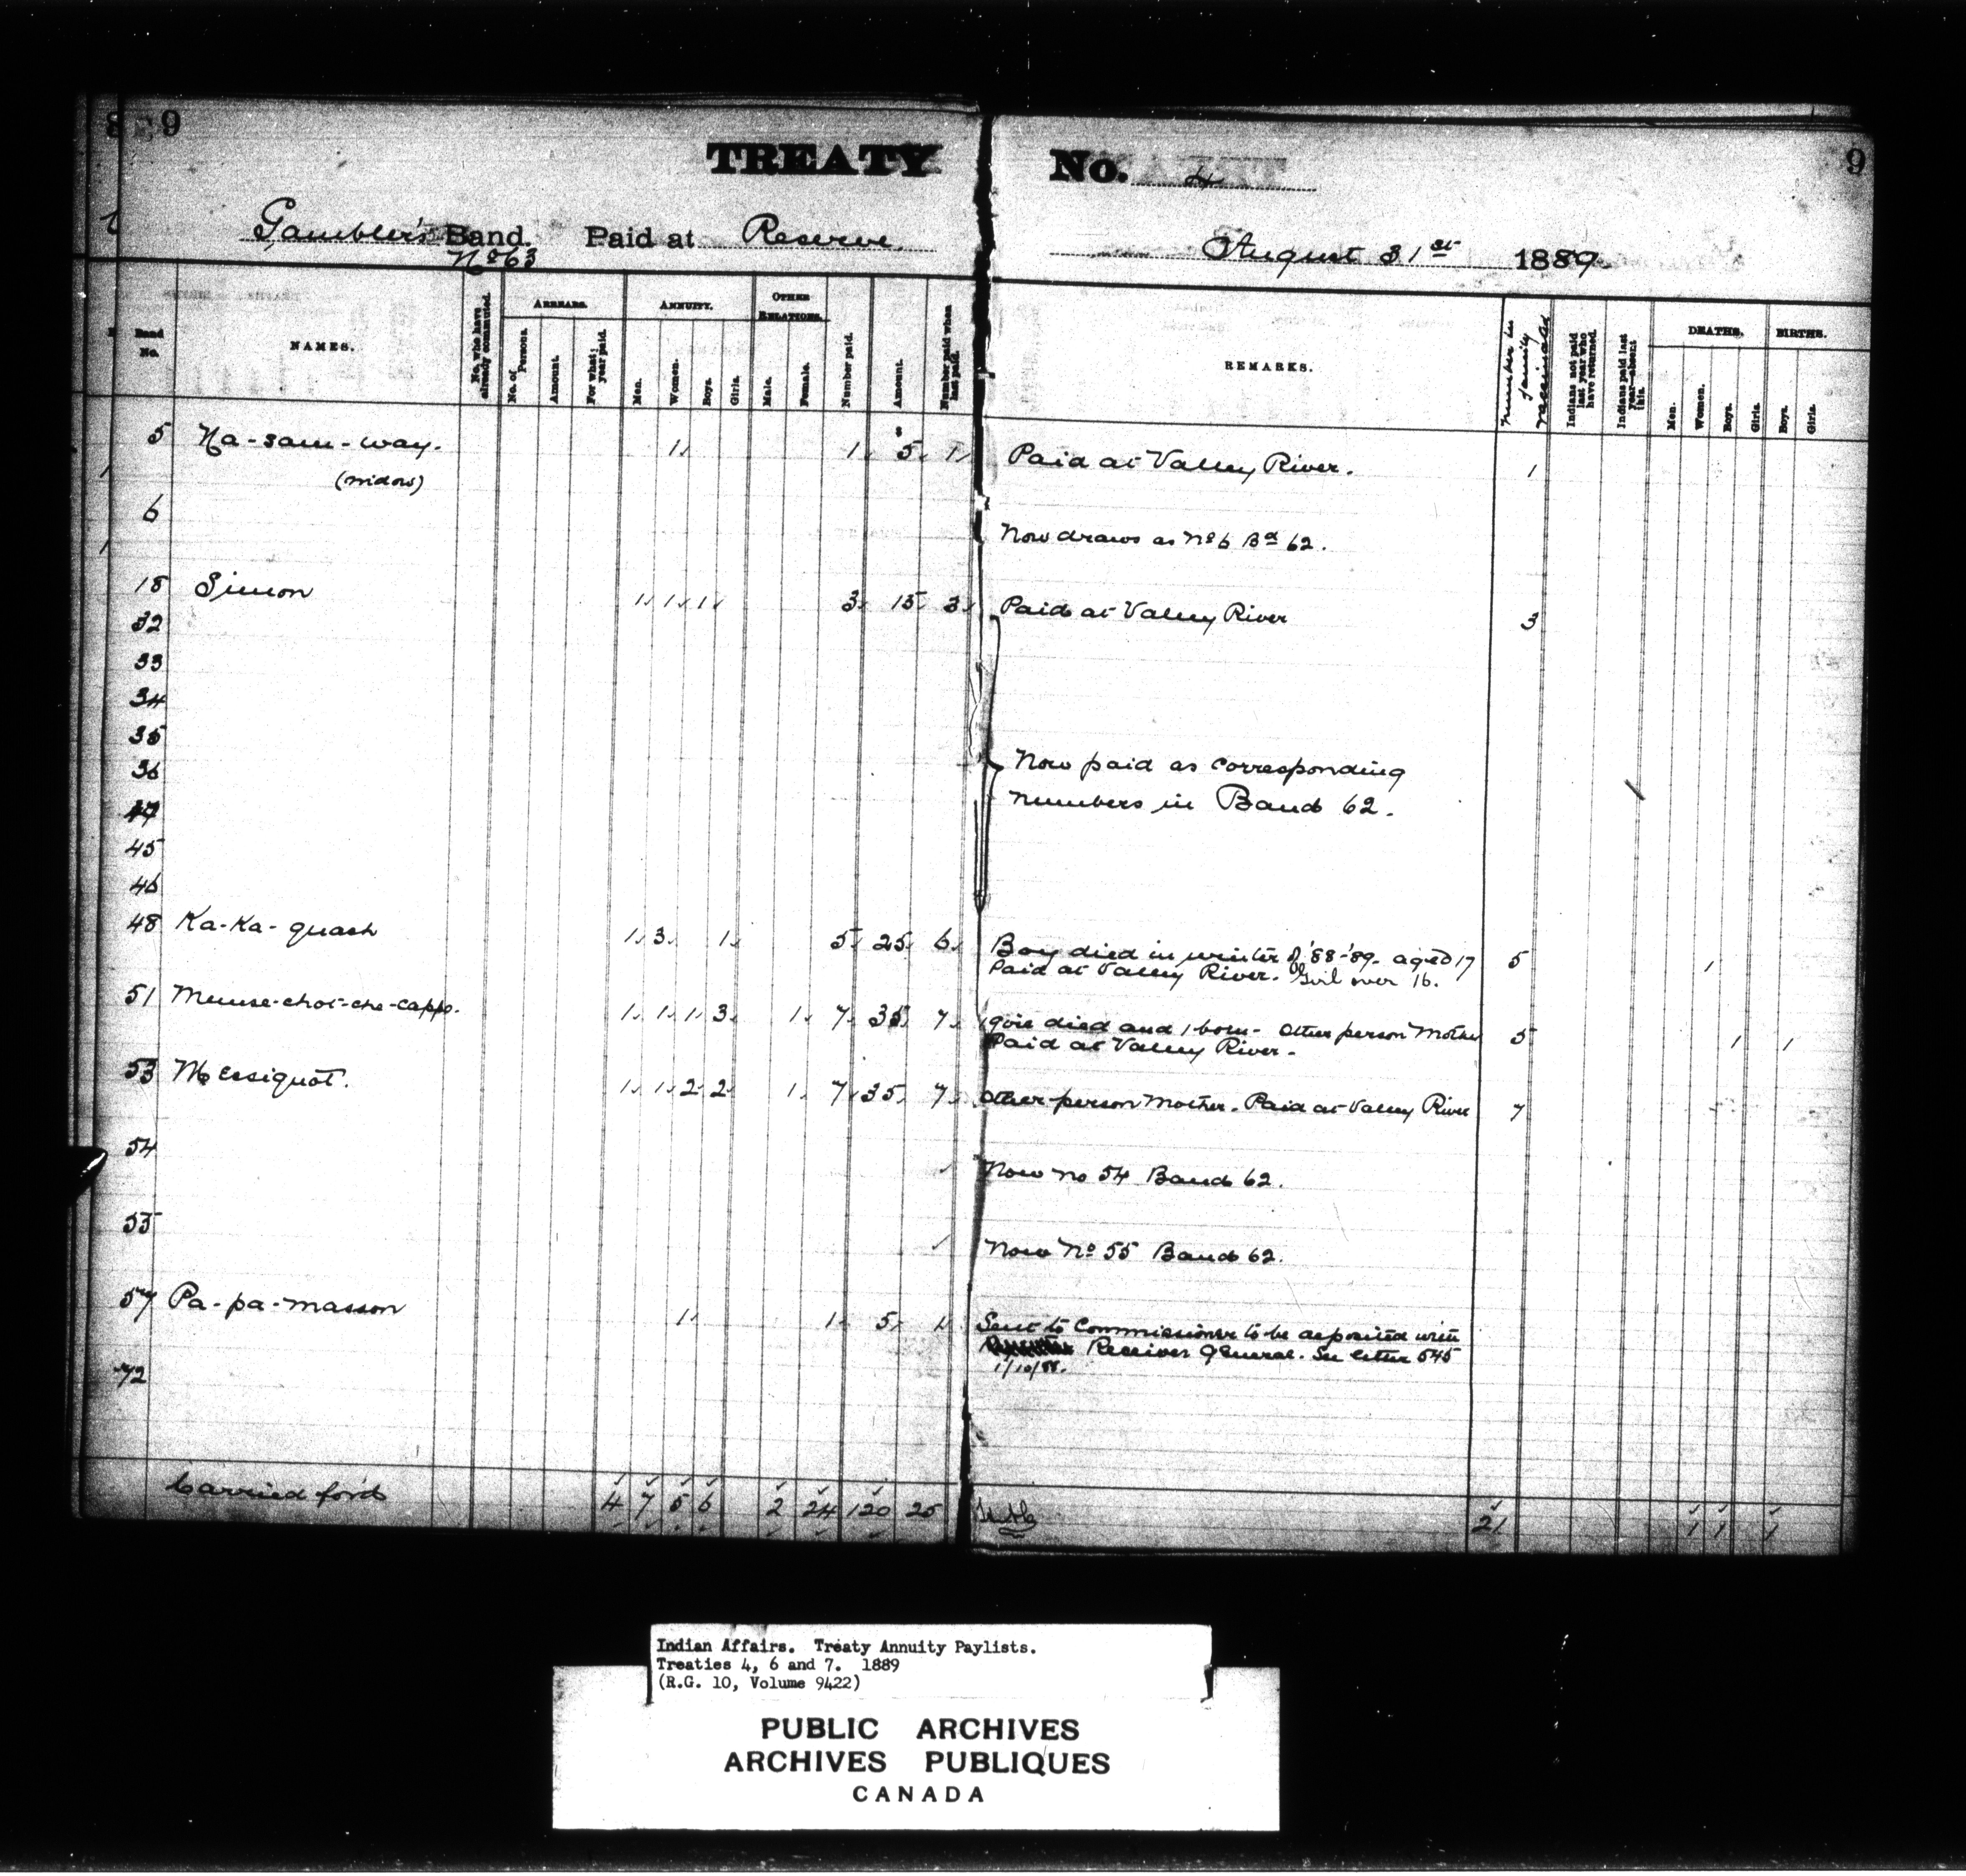 9
9
TREATY No. 4
Gambler's Band. Paid at Reserve. August 31st 1889.
No 63
Band No.
NAMES.
No. who have already commuted.
ARREARS.
No. of Persons.
Amount.
For what year paid.
ANNUITY.
Men.
Women.
Boys.
Girls.
OTHER RELATIONS.
Male.
Female.
Number paid.
Amount.
Number paid when last paid.
REMARKS.
Number in family vaccinated
Indians not paid last year who have returned.
Indians paid last year—absent this.
DEATHS.
Men.
Women.
Boys.
Girls.
BIRTHS.
Boys.
Girls.
5 Na-sam-way. 1 1 $5 1 Paid at Valley River. 1
(widow)
6 Now draws as No 6 Bd 62.
18 Simon 1 1 1 3 15 3 Paid at Valley River 3
32
33
34
35
36 Now paid as corresponding
numbers in Band 62.
45
46
48 Ka-Ka-quash 1 3 1 5 25 6 Boy died in winter of '88-'89. aged 17 5 1
Paid at Valley River. Girl over 16.
51 1 1 1 3 1 7 35 7 1 girl died and 1 born - Other person Mother 5 1 1
Paid at Valley River.
53 1 1 2 2 1 7 35 7 Other person Mother. Paid at Valley River 7
54 Now no 54 Band 62.
55 Now No 55 Band 62.
57 Pa-pa-masson 1 1 5 1 Sent to Commissioner to be deposited with
Receiver General. See letter 545
1/10/88.
72
Carried for'd 4 7 5 6 2 24 120 25 21 1 1 1
Indian Affairs. Treaty Annuity Paylists.
Treaties 4, 6 and 7. 1889
(R.G. 10, Volume 9422)
PUBLIC ARCHIVES
ARCHIVES PUBLIQUES
CANADA